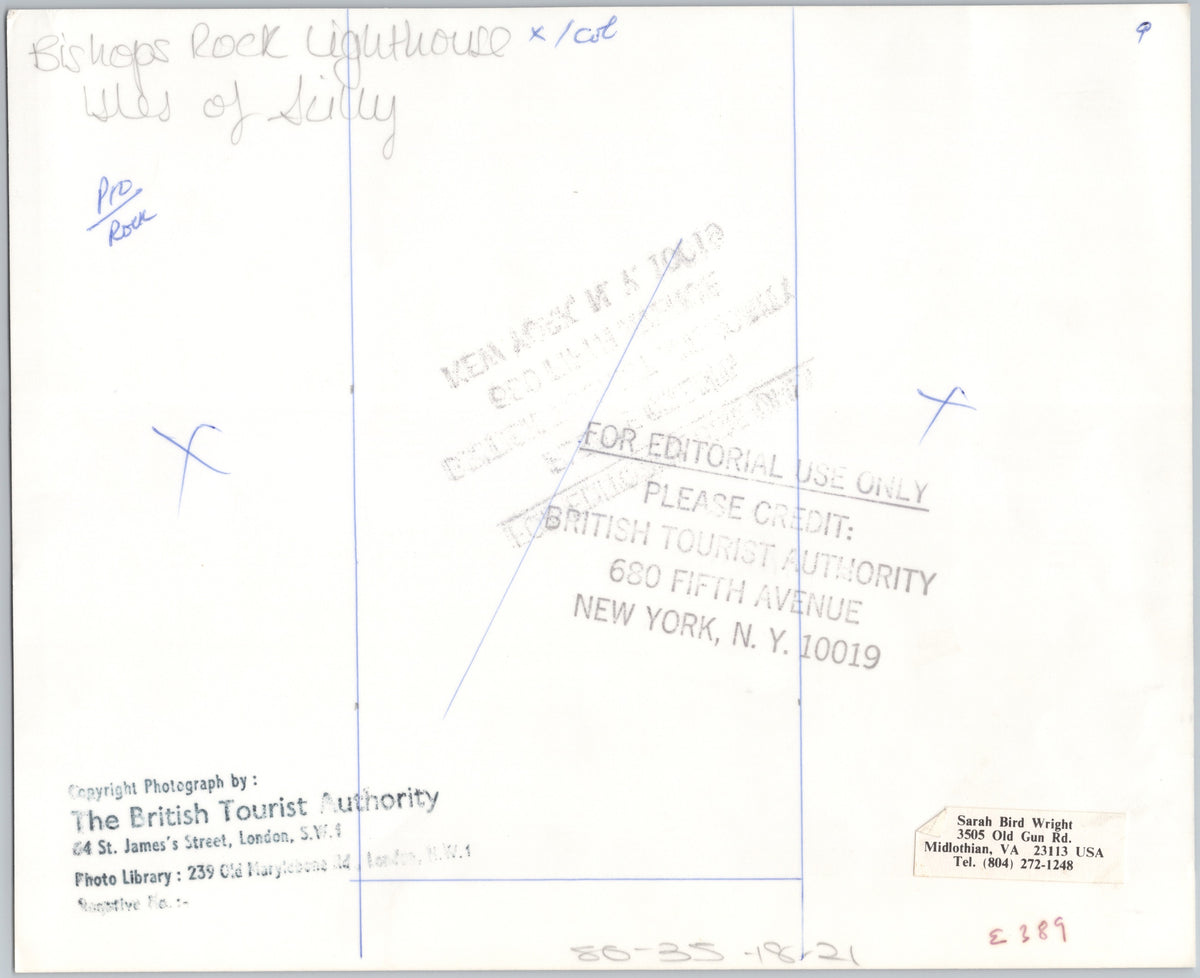 Bishops Rock Lighthouse x/col
Isles of Scilly
Pro
Rock
NEW YORK, N. Y. 10019
FOR EDITORIAL USE ONLY
PLEASE CREDIT:
BRITISH TOURIST AUTHORITY
680 FIFTH AVENUE
NEW YORK, N. Y. 10019
Copyright Photograph by :
The British Tourist Authority
64 St. James's Street, London, S.W.1
Photo Library : 239 Old Marylebone Rd., London, N.W.1
Negative No. :-
Sarah Bird Wright
3505 Old Gun Rd.
Midlothian, VA 23113 USA
Tel. (804) 272-1248
E 389
86-35-18-21